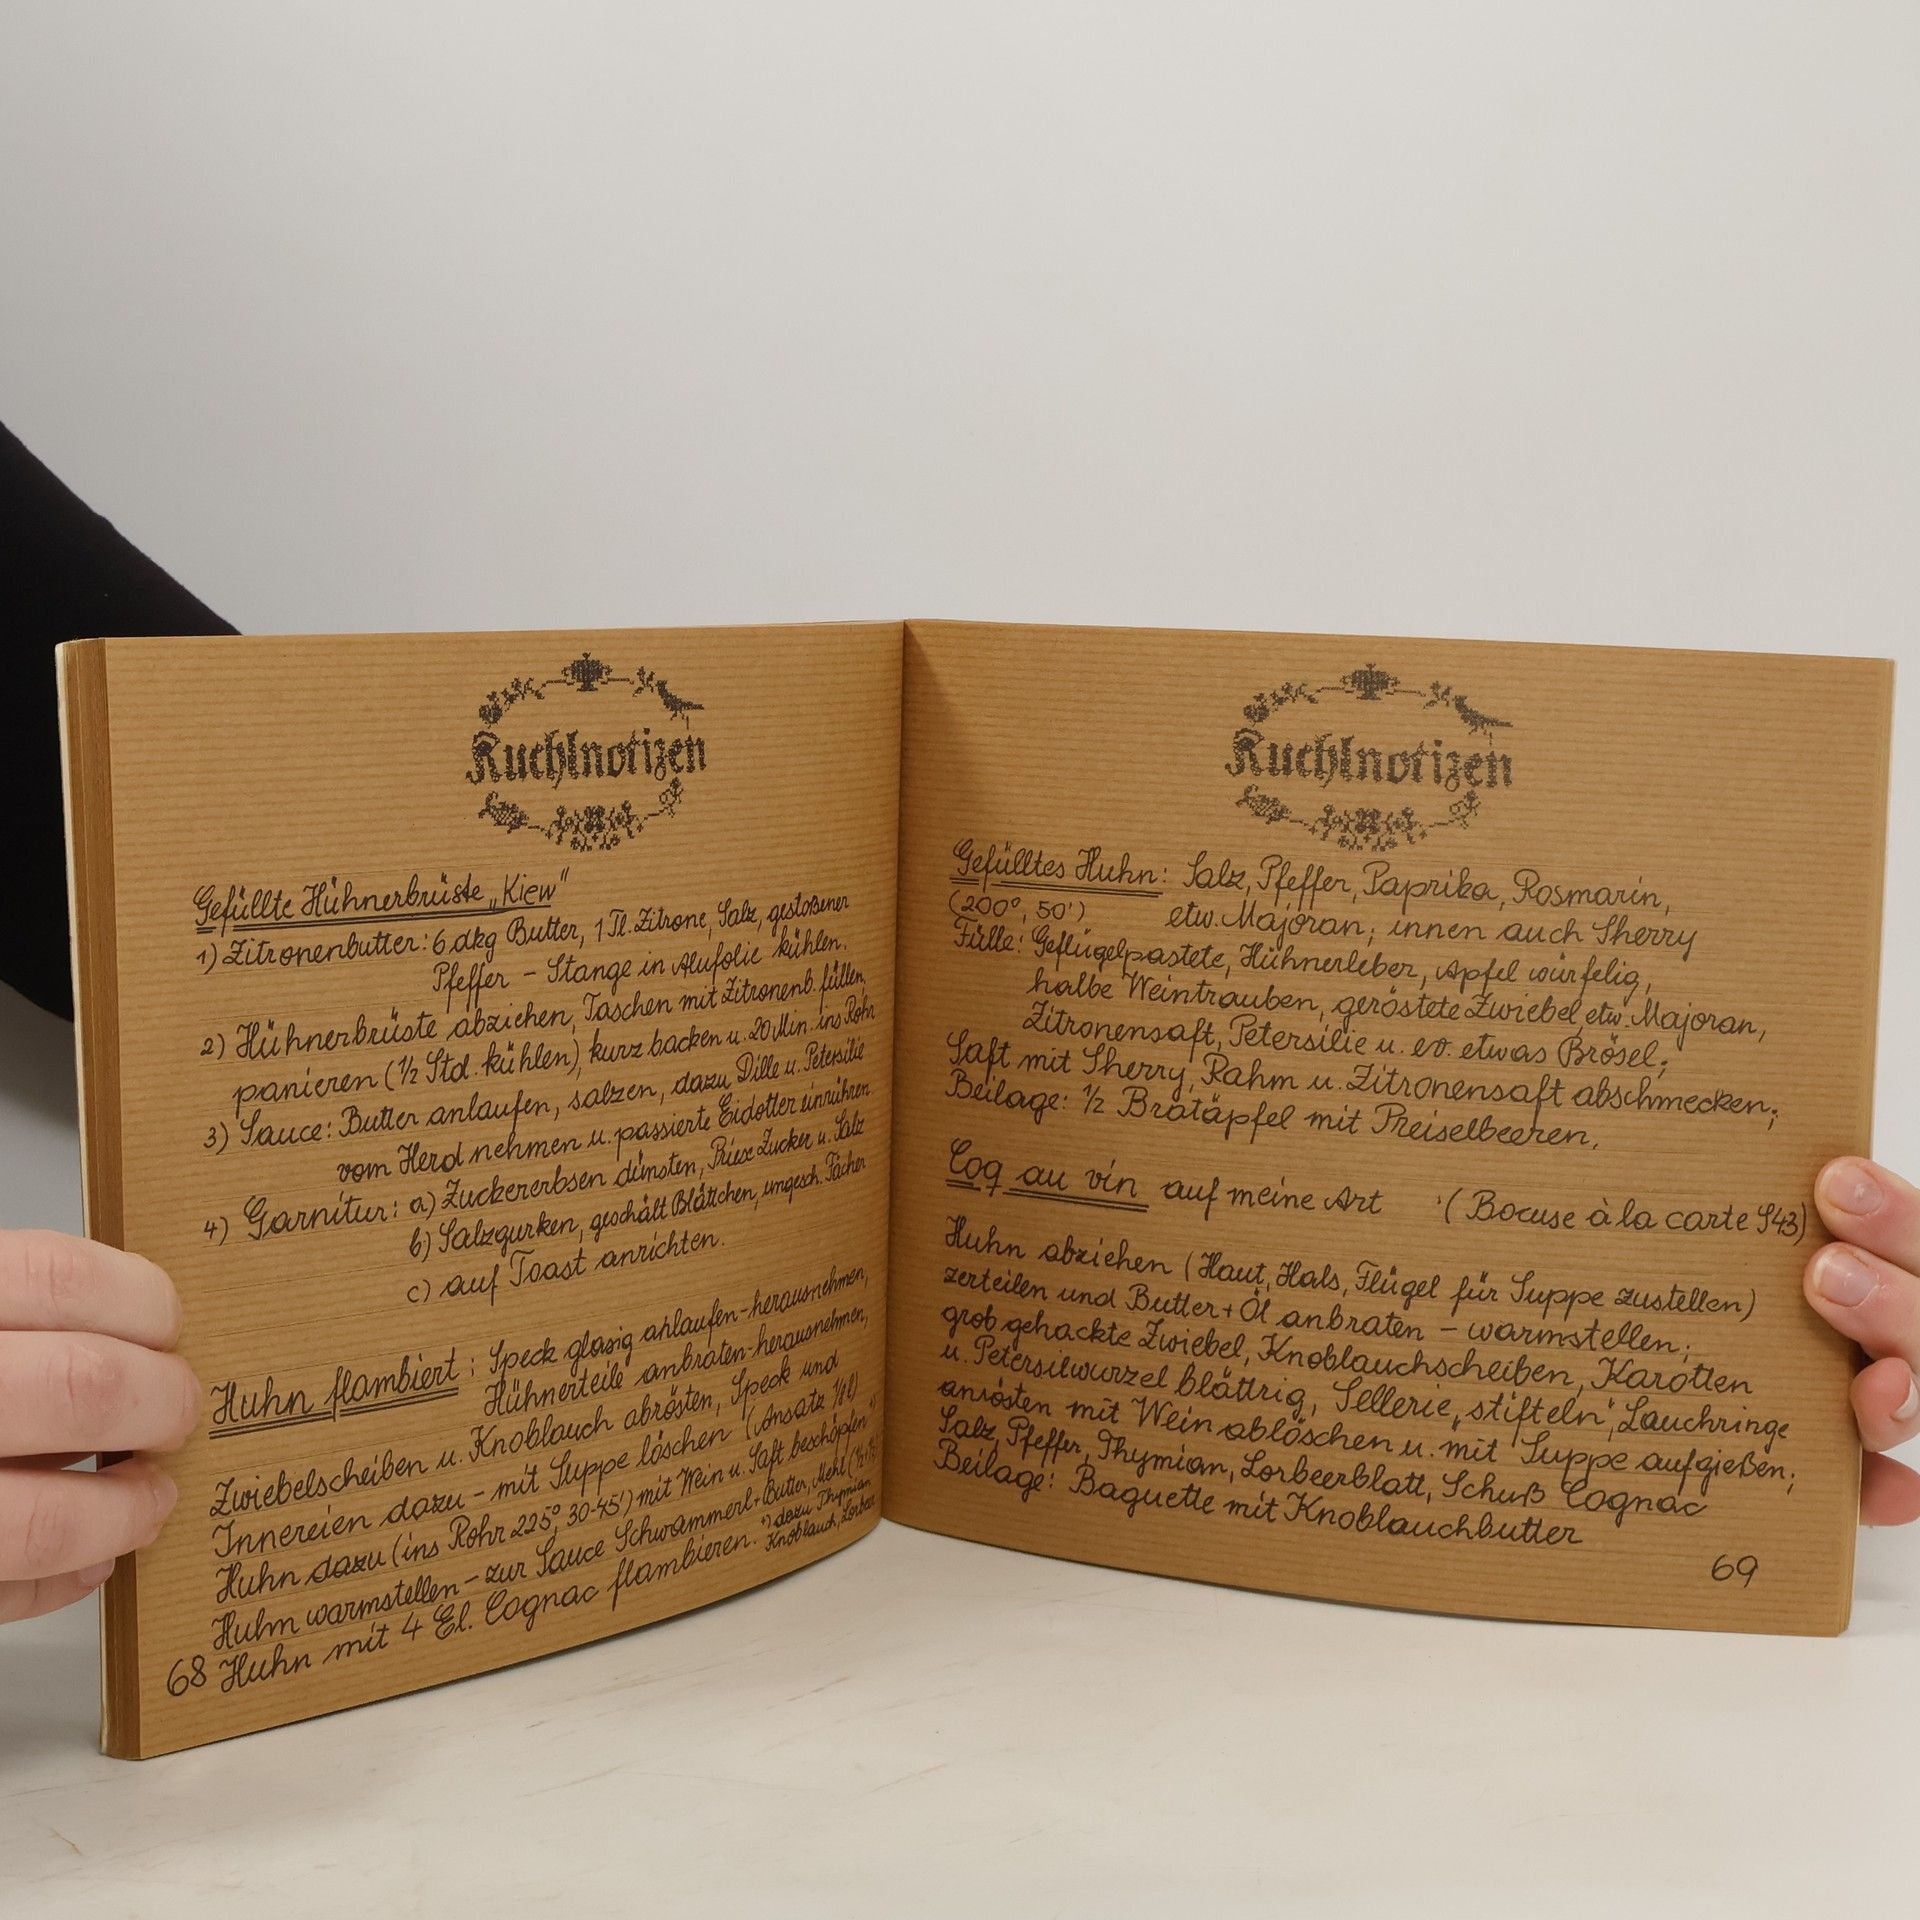 Kuchlnotizen
Gefüllte Hühnerbrüste „Kiew"
1) Zitronenbutter: 6 dkg Butter, 1 Tl. Zitrone, Salz, gestoßener
Pfeffer – Stange in Alufolie kühlen.
2) Hühnerbrüste abziehen, Taschen mit Zitronenb. füllen,
panieren (½ Std. kühlen), kurz backen u. 20 Min. ins Rohr
3) Sauce: Butter anlaufen, salzen, dazu Dille u. Petersilie
vom Herd nehmen u. passierte Eidotter einrühren
4) Garnitur: a) Zuckererbsen dünsten, Prise Zucker u. Salz
b) Salzgurken, geschält Blättchen, ungesch. Fächer
c) auf Toast anrichten.
Huhn flambiert: Speck glasig anlaufen-herausnehmen,
Hühnerteile anbraten-herausnehmen,
Zwiebelscheiben u. Knoblauch abrösten, Speck und
Innereien dazu – mit Suppe löschen (Ansatz ⅛ l)
Huhn dazu (ins Rohr 225°, 30-45') mit Wein u. Saft beschöpfen *)
Huhn warmstellen – zur Sauce Schwammerl + Butter, Mehl
Huhn mit 4 El. Cognac flambieren.
*) dazu Thymian
Knoblauch, Lorbeer
68
Kuchlnotizen
Gefülltes Huhn: Salz, Pfeffer, Paprika, Rosmarin,
(200°, 50') etw. Majoran; innen auch Sherry
Fülle: Geflügelpastete, Hühnerleber, Apfel würfelig,
halbe Weintrauben, geröstete Zwiebel, etw. Majoran,
Zitronensaft, Petersilie u. ev. etwas Brösel;
Saft mit Sherry, Rahm u. Zitronensaft abschmecken;
Beilage: ½ Bratäpfel mit Preiselbeeren.
Coq au vin auf meine Art (Bocuse à la carte S43)
Huhn abziehen (Haut, Hals, Flügel für Suppe zustellen)
zerteilen und Butter + Öl anbraten – warmstellen;
grob gehackte Zwiebel, Knoblauchscheiben, Karotten
u. Petersilwurzel blättrig, Sellerie „stifteln", Lauchringe
anrösten mit Wein ablöschen u. mit Suppe aufgießen;
Salz, Pfeffer, Thymian, Lorbeerblatt, Schuß Cognac
Beilage: Baguette mit Knoblauchbutter
69